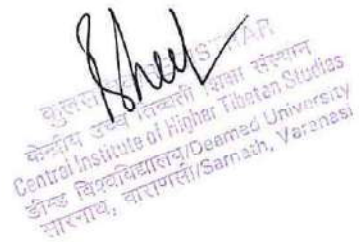 केन्द्रीय उच्च तिब्बती शिक्षा संस्थान
Central Institute of Higher Tibetan Studies
डीम्ड विश्वविद्यालय/Deemed University
सारनाथ, वाराणसी/Sarnath, Varanasi